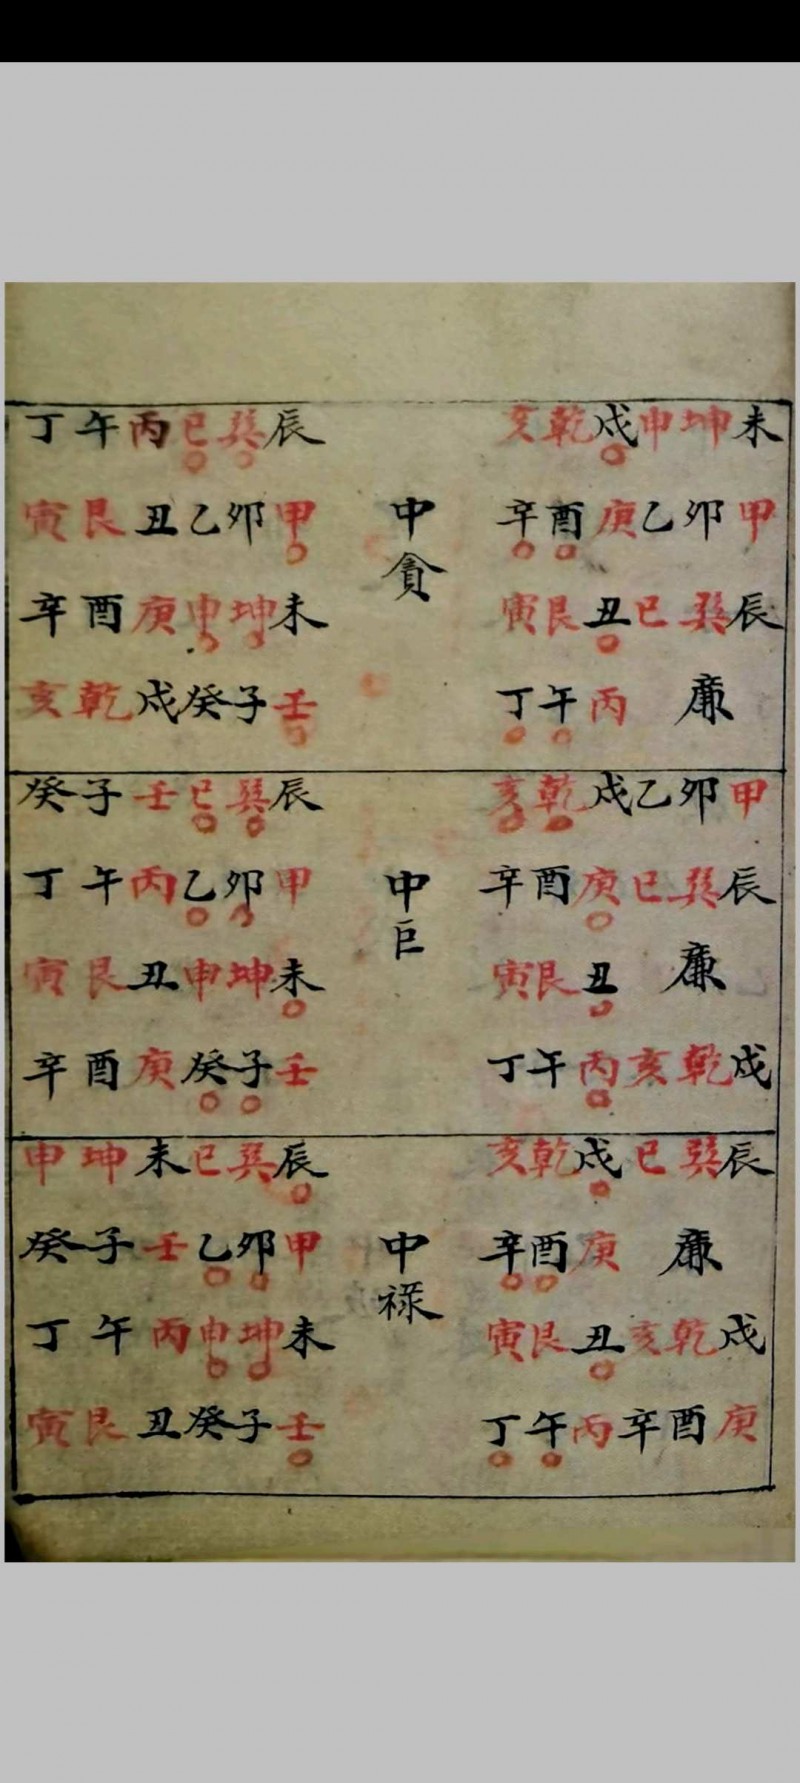 未坤申戌乾亥
甲卯乙庚酉辛
辰巽巳丑艮寅
廉丙午丁
中貪
辰巽巳丙午丁
甲卯乙丑艮寅
未坤申庚酉辛
壬子癸戌乾亥
甲卯乙戌乾亥
辰巽巳庚酉辛
廉丑艮寅
戌乾亥丙午丁
中巨
辰巽巳壬子癸
甲卯乙丙午丁
未坤申丑艮寅
壬子癸庚酉辛
辰巽巳戌乾亥
廉庚酉辛
戌乾亥丑艮寅
庚酉辛丙午丁
中祿
辰巽巳未坤申
甲卯乙壬子癸
未坤申丙午丁
壬子癸丑艮寅